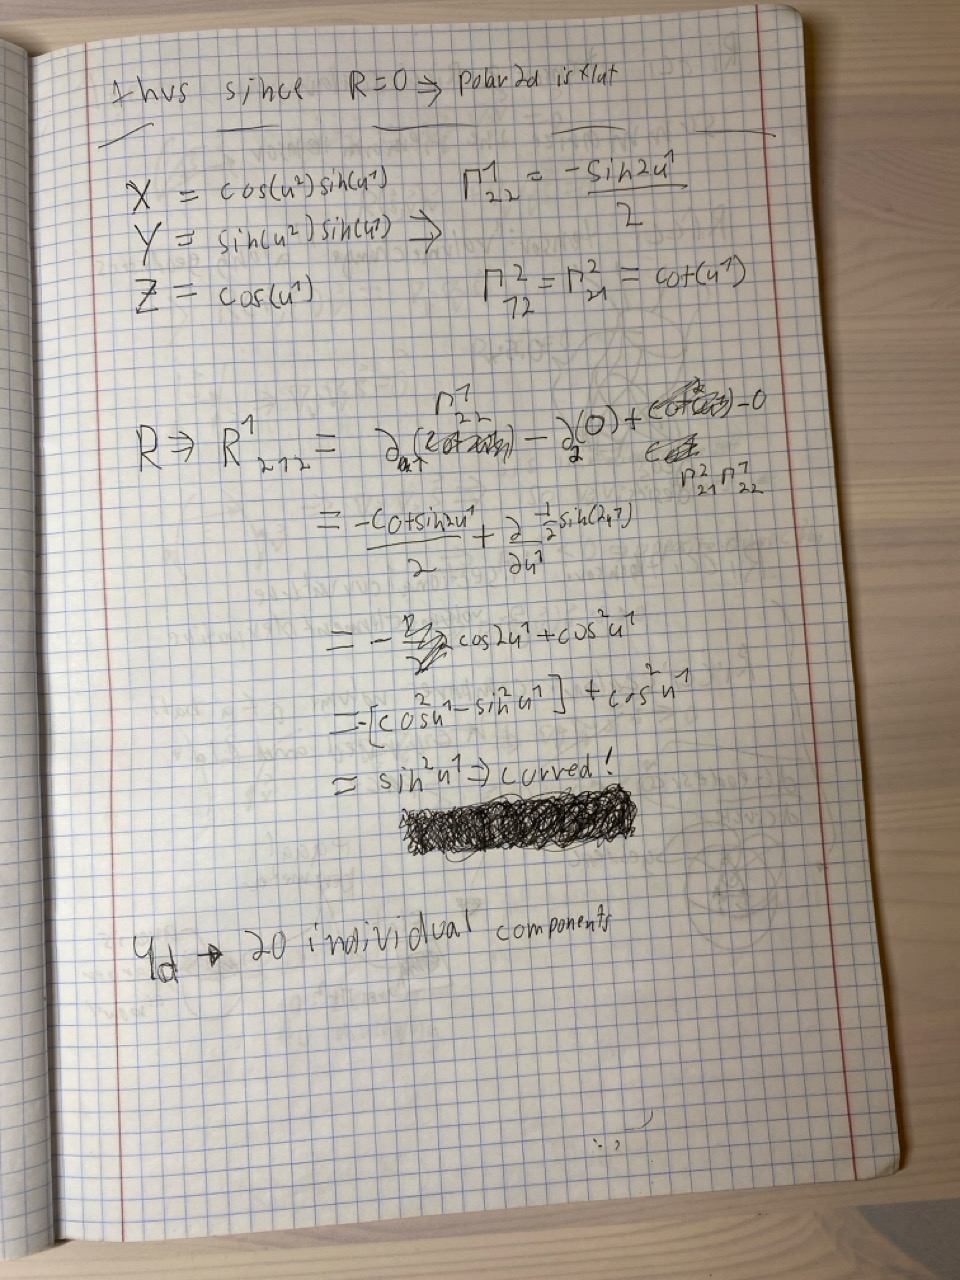 thus since R=0 ⇒ polar 2d is flat
X = cos(u²)sin(u¹) Γ¹₂₂ = -sin2u¹/2
Y = sin(u²)sin(u¹) ⇒
Z = cos(u¹) Γ²₁₂ = Γ²₂₁ = cot(u¹)
R ⇒ R¹₂₁₂ = ∂u¹(Γ¹₂₂) - ∂₂(0) + Γ²₂₁Γ¹₂₂ - 0
= -cotsin2u¹/2 + ∂/∂u¹ -1/2 sin(2u¹)
= - cos2u¹ + cos²u¹
= -[cos²u¹ - sin²u¹] + cos²u¹
= sin²u¹ ⇒ curved!
4d → 20 individual components